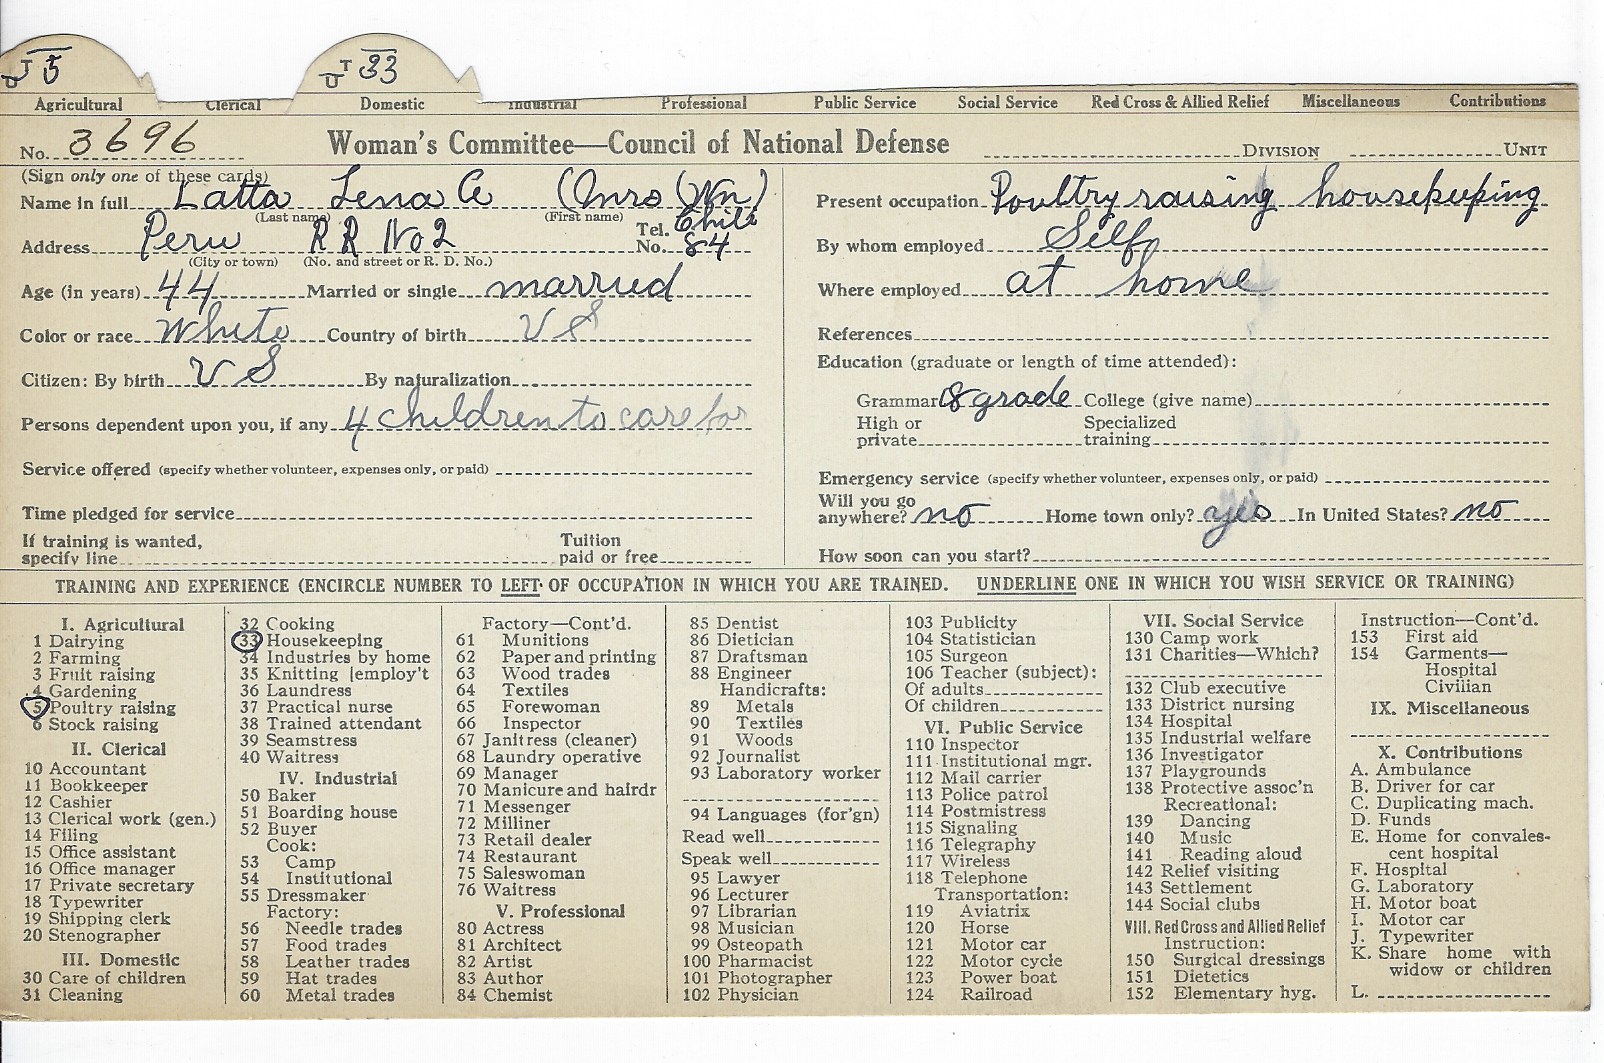 J 5 U
T 33 U
Agricultural Clerical Domestic Industrial Professional Public Service Social Service Red Cross & Allied Relief Miscellaneous Contributions
No. 3696 Woman's Committee—Council of National Defense DIVISION UNIT
(Sign only one of these cards)
Name in full Latta Lena A (Mrs (Wm)
(Last name) (First name)
Address Peru RR No 2 Tel. No. Chili 84
(City or town) (No. and street or R. D. No.)
Age (in years) 44 Married or single married
Color or race White Country of birth U S
Citizen: By birth U S By naturalization
Persons dependent upon you, if any 4 children to care for
Service offered (specify whether volunteer, expenses only, or paid)
Time pledged for service
If training is wanted, specify line Tuition paid or free
Present occupation Poultry raising housekeeping
By whom employed Self
Where employed at home
References
Education (graduate or length of time attended):
Grammar 8 grade College (give name)
High or private Specialized training
Emergency service (specify whether volunteer, expenses only, or paid)
Will you go anywhere? no Home town only? yes In United States? no
How soon can you start?
TRAINING AND EXPERIENCE (ENCIRCLE NUMBER TO LEFT OF OCCUPATION IN WHICH YOU ARE TRAINED. UNDERLINE ONE IN WHICH YOU WISH SERVICE OR TRAINING)
I. Agricultural
1 Dairying
2 Farming
3 Fruit raising
4 Gardening
5 Poultry raising
6 Stock raising
II. Clerical
10 Accountant
11 Bookkeeper
12 Cashier
13 Clerical work (gen.)
14 Filing
15 Office assistant
16 Office manager
17 Private secretary
18 Typewriter
19 Shipping clerk
20 Stenographer
III. Domestic
30 Care of children
31 Cleaning
32 Cooking
33 Housekeeping
34 Industries by home
35 Knitting [employ't
36 Laundress
37 Practical nurse
38 Trained attendant
39 Seamstress
40 Waitress
IV. Industrial
50 Baker
51 Boarding house
52 Buyer
Cook:
53 Camp
54 Institutional
55 Dressmaker
Factory:
56 Needle trades
57 Food trades
58 Leather trades
59 Hat trades
60 Metal trades
Factory—Cont'd.
61 Munitions
62 Paper and printing
63 Wood trades
64 Textiles
65 Forewoman
66 Inspector
67 Janitress (cleaner)
68 Laundry operative
69 Manager
70 Manicure and hairdr
71 Messenger
72 Milliner
73 Retail dealer
74 Restaurant
75 Saleswoman
76 Waitress
V. Professional
80 Actress
81 Architect
82 Artist
83 Author
84 Chemist
85 Dentist
86 Dietician
87 Draftsman
88 Engineer
Handicrafts:
89 Metals
90 Textiles
91 Woods
92 Journalist
93 Laboratory worker
94 Languages (for'gn)
Read well
Speak well
95 Lawyer
96 Lecturer
97 Librarian
98 Musician
99 Osteopath
100 Pharmacist
101 Photographer
102 Physician
103 Publicity
104 Statistician
105 Surgeon
106 Teacher (subject):
Of adults
Of children
VI. Public Service
110 Inspector
111 Institutional mgr.
112 Mail carrier
113 Police patrol
114 Postmistress
115 Signaling
116 Telegraphy
117 Wireless
118 Telephone
Transportation:
119 Aviatrix
120 Horse
121 Motor car
122 Motor cycle
123 Power boat
124 Railroad
VII. Social Service
130 Camp work
131 Charities—Which?
132 Club executive
133 District nursing
134 Hospital
135 Industrial welfare
136 Investigator
137 Playgrounds
138 Protective assoc'n
Recreational:
139 Dancing
140 Music
141 Reading aloud
142 Relief visiting
143 Settlement
144 Social clubs
VIII. Red Cross and Allied Relief
Instruction:
150 Surgical dressings
151 Dietetics
152 Elementary hyg.
Instruction—Cont'd.
153 First aid
154 Garments—
Hospital
Civilian
IX. Miscellaneous
X. Contributions
A. Ambulance
B. Driver for car
C. Duplicating mach.
D. Funds
E. Home for convales-
cent hospital
F. Hospital
G. Laboratory
H. Motor boat
I. Motor car
J. Typewriter
K. Share home with
widow or children
L.